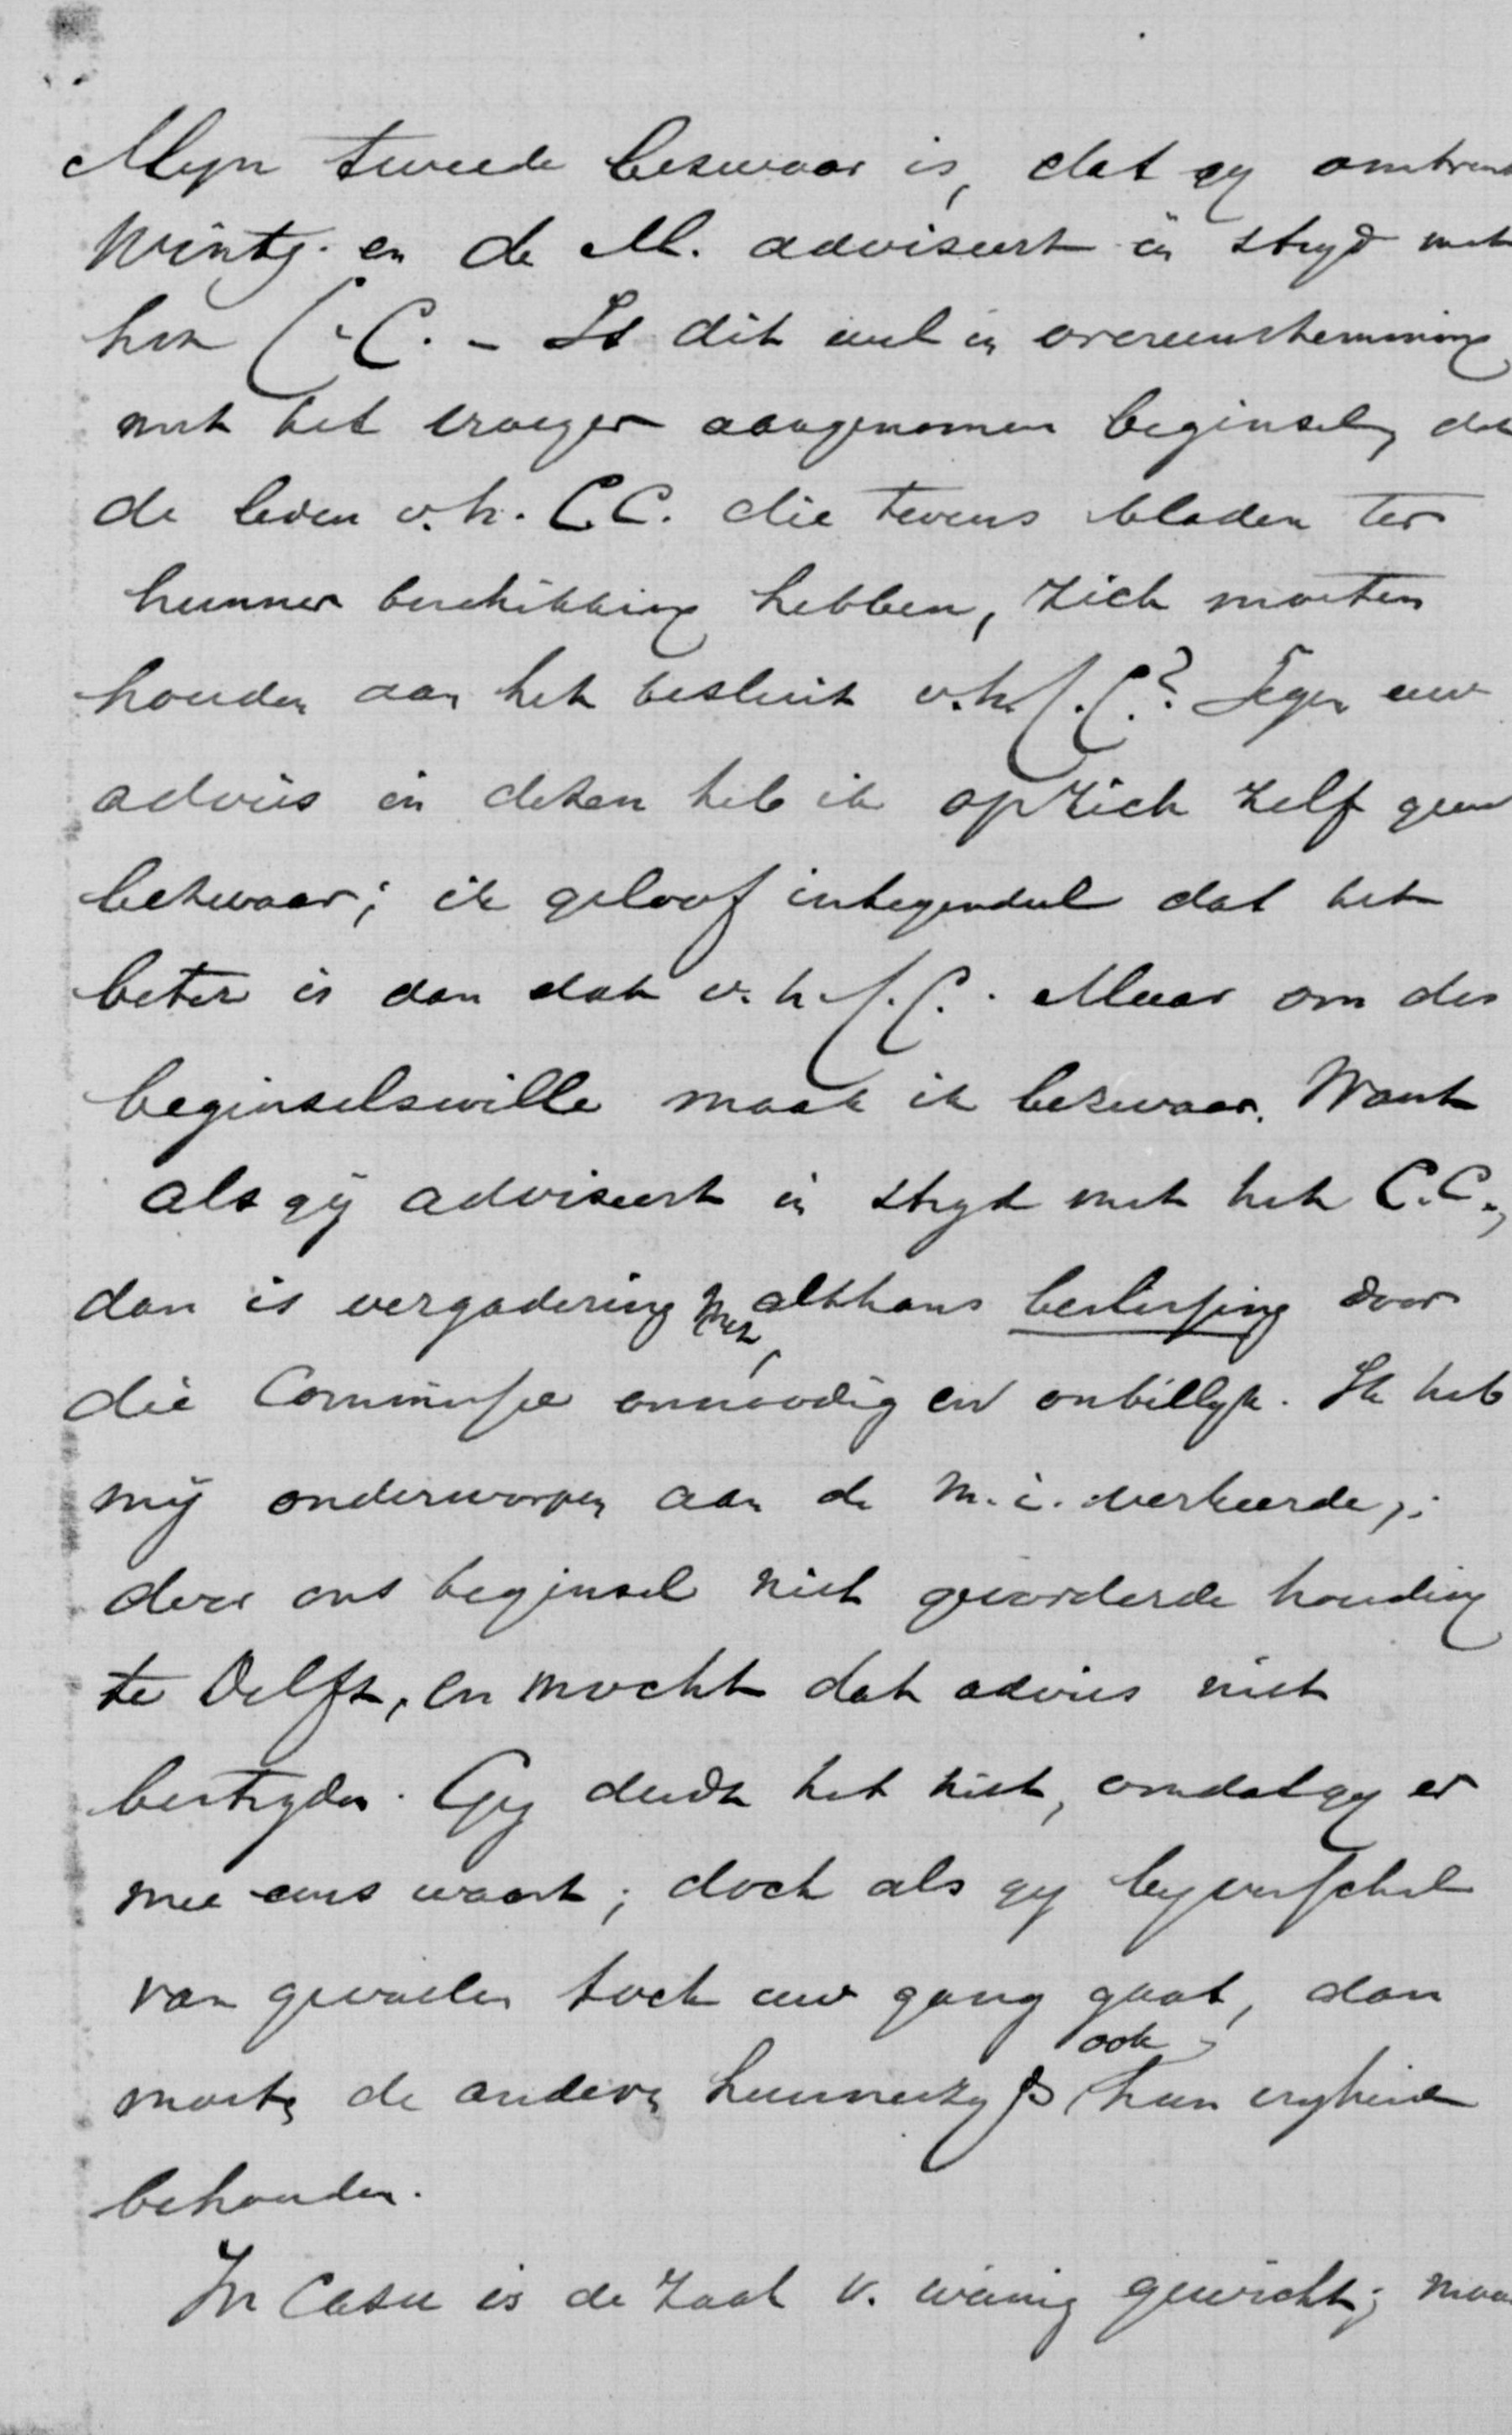 Mijn tweede bezwaar is, dat gij omtrent
Wintg. en de M. adviseert in strijd met
het C.C. – Is dit wel in overeenstemming
met het vroeger aangenomen beginsel, dat
de leden v.h. C.C. die tevens bladen ter
hunner beschikking hebben, zich moeten
houden aan het besluit v.h. C.C.? Tegen uw
advies in dezen heb ik op zich zelf geen
bezwaar; ik geloof integendeel dat het
beter is dan dat v.h. C.C. Maar om des
beginselswille maak ik bezwaar. Want
als gij adviseert in strijd met het C.C.,
dan is vergadering althans beslissing door
die Commissie onnoodig en onbillijk. Ik heb
mij onderworpen aan de m.i. verkeerde,
door ons beginsel niet gevorderde houding
te Delft, en mocht dat advies niet
bestrijden. Gij deedt het niet, omdat gij er
mee eens waart; doch als gij bij verschil
van gevoelen toch uw gang gaat, dan
moeten de anderen hunnerzijds ook hun vrijheid
behouden.
In casu is de zaak v. weinig gewicht; maar